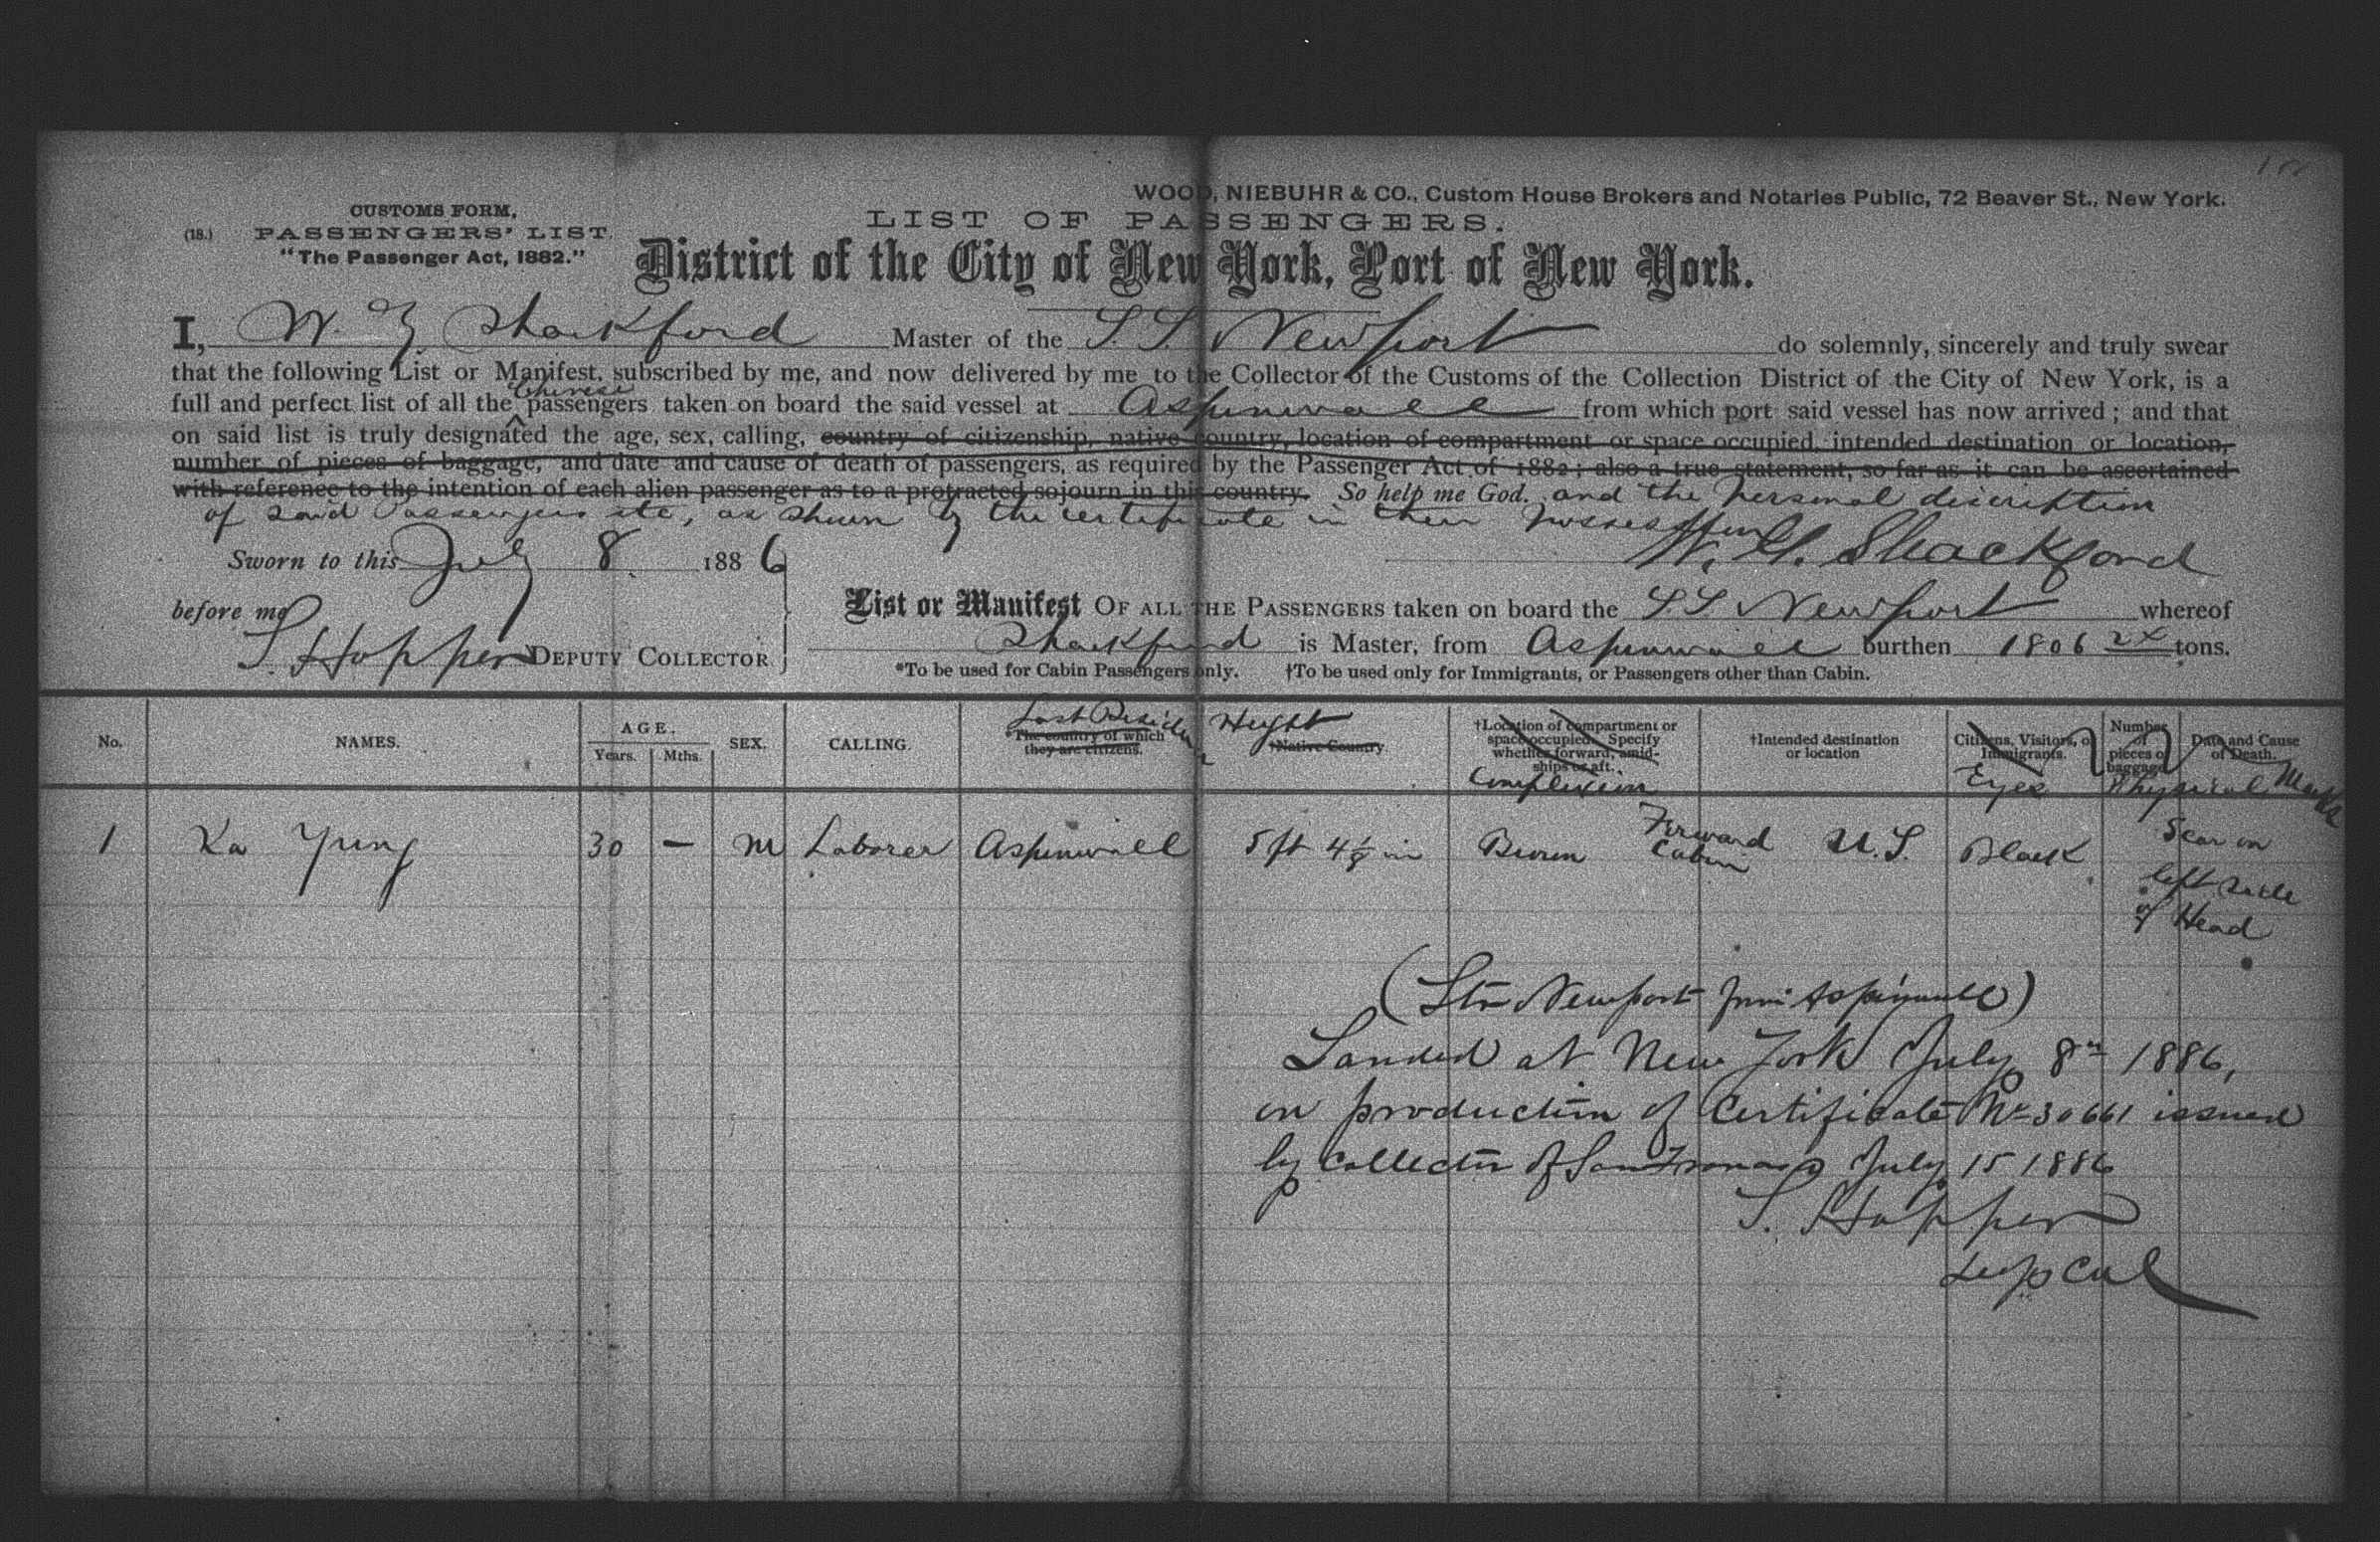 WOOD, NIEBUHR & CO., Custom House Brokers and Notaries Public, 72 Beaver St., New York.
CUSTOMS FORM,
(18.) PASSENGERS' LIST.
"The Passenger Act, 1882."
LIST OF PASSENGERS.
District of the City of New York, Port of New York.
I, W. G. Shackford Master of the S.S. Newport do solemnly, sincerely and truly swear
that the following List or Manifest, subscribed by me, and now delivered by me to the Collector of the Customs of the Collection District of the City of New York, is a
full and perfect list of all the Chinese passengers taken on board the said vessel at Aspinwall from which port said vessel has now arrived; and that
on said list is truly designated the age, sex, calling, country of citizenship, native country, location of compartment or space occupied, intended destination or location,
number of pieces of baggage, and date and cause of death of passengers, as required by the Passenger Act of 1882; also a true statement, so far as it can be ascertained
with reference to the intention of each alien passenger as to a protracted sojourn in this country. So help me God. and the personal discription
of said Passengers etc, as shown by the certificate in their possession
W. G. Shackford
Sworn to this July 8 1886
before me
S. Hopper DEPUTY COLLECTOR
List or Manifest OF ALL THE PASSENGERS taken on board the S.S. Newport whereof
Shackford is Master, from Aspinwall burthen 1806 tons.
*To be used for Cabin Passengers only. †To be used only for Immigrants, or Passengers other than Cabin.
No. NAMES. AGE. Years. Mths. SEX. CALLING. Last Residence *The country of which they are citizens. Height †Native Country. †Location of compartment or space occupied. Specify whether forward, amidships or aft. Complexion †Intended destination or location Citizens, Visitors, or Immigrants. Eyes Number of pieces of baggage Date and Cause of Death. Physical Marks
1 Ka Yung 30 — M Laborer Aspinwall 5 ft 4 1/8 in Brown Forward Cabin U.S. Black Scar on
left side
of Head
(Str Newport from Aspinwall)
Landed at New York July 8th 1886,
on production of Certificate No 30661 issued
by Collector of San Francisco July 15 1886
S. Hopper
Dep Col